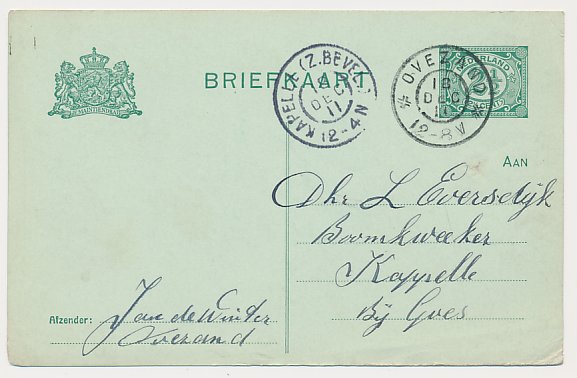 BRIEFKAART
KAPELLE (Z. BEVEL.)
DEC
11
12-4 N
OVEZAND
18
DEC
11
12-8V
NEDERLAND
AAN
Dhr L Eversdijk
Boomkweeker
Kappelle
Bij Goes
Afzender: Jan de Winter
Overand